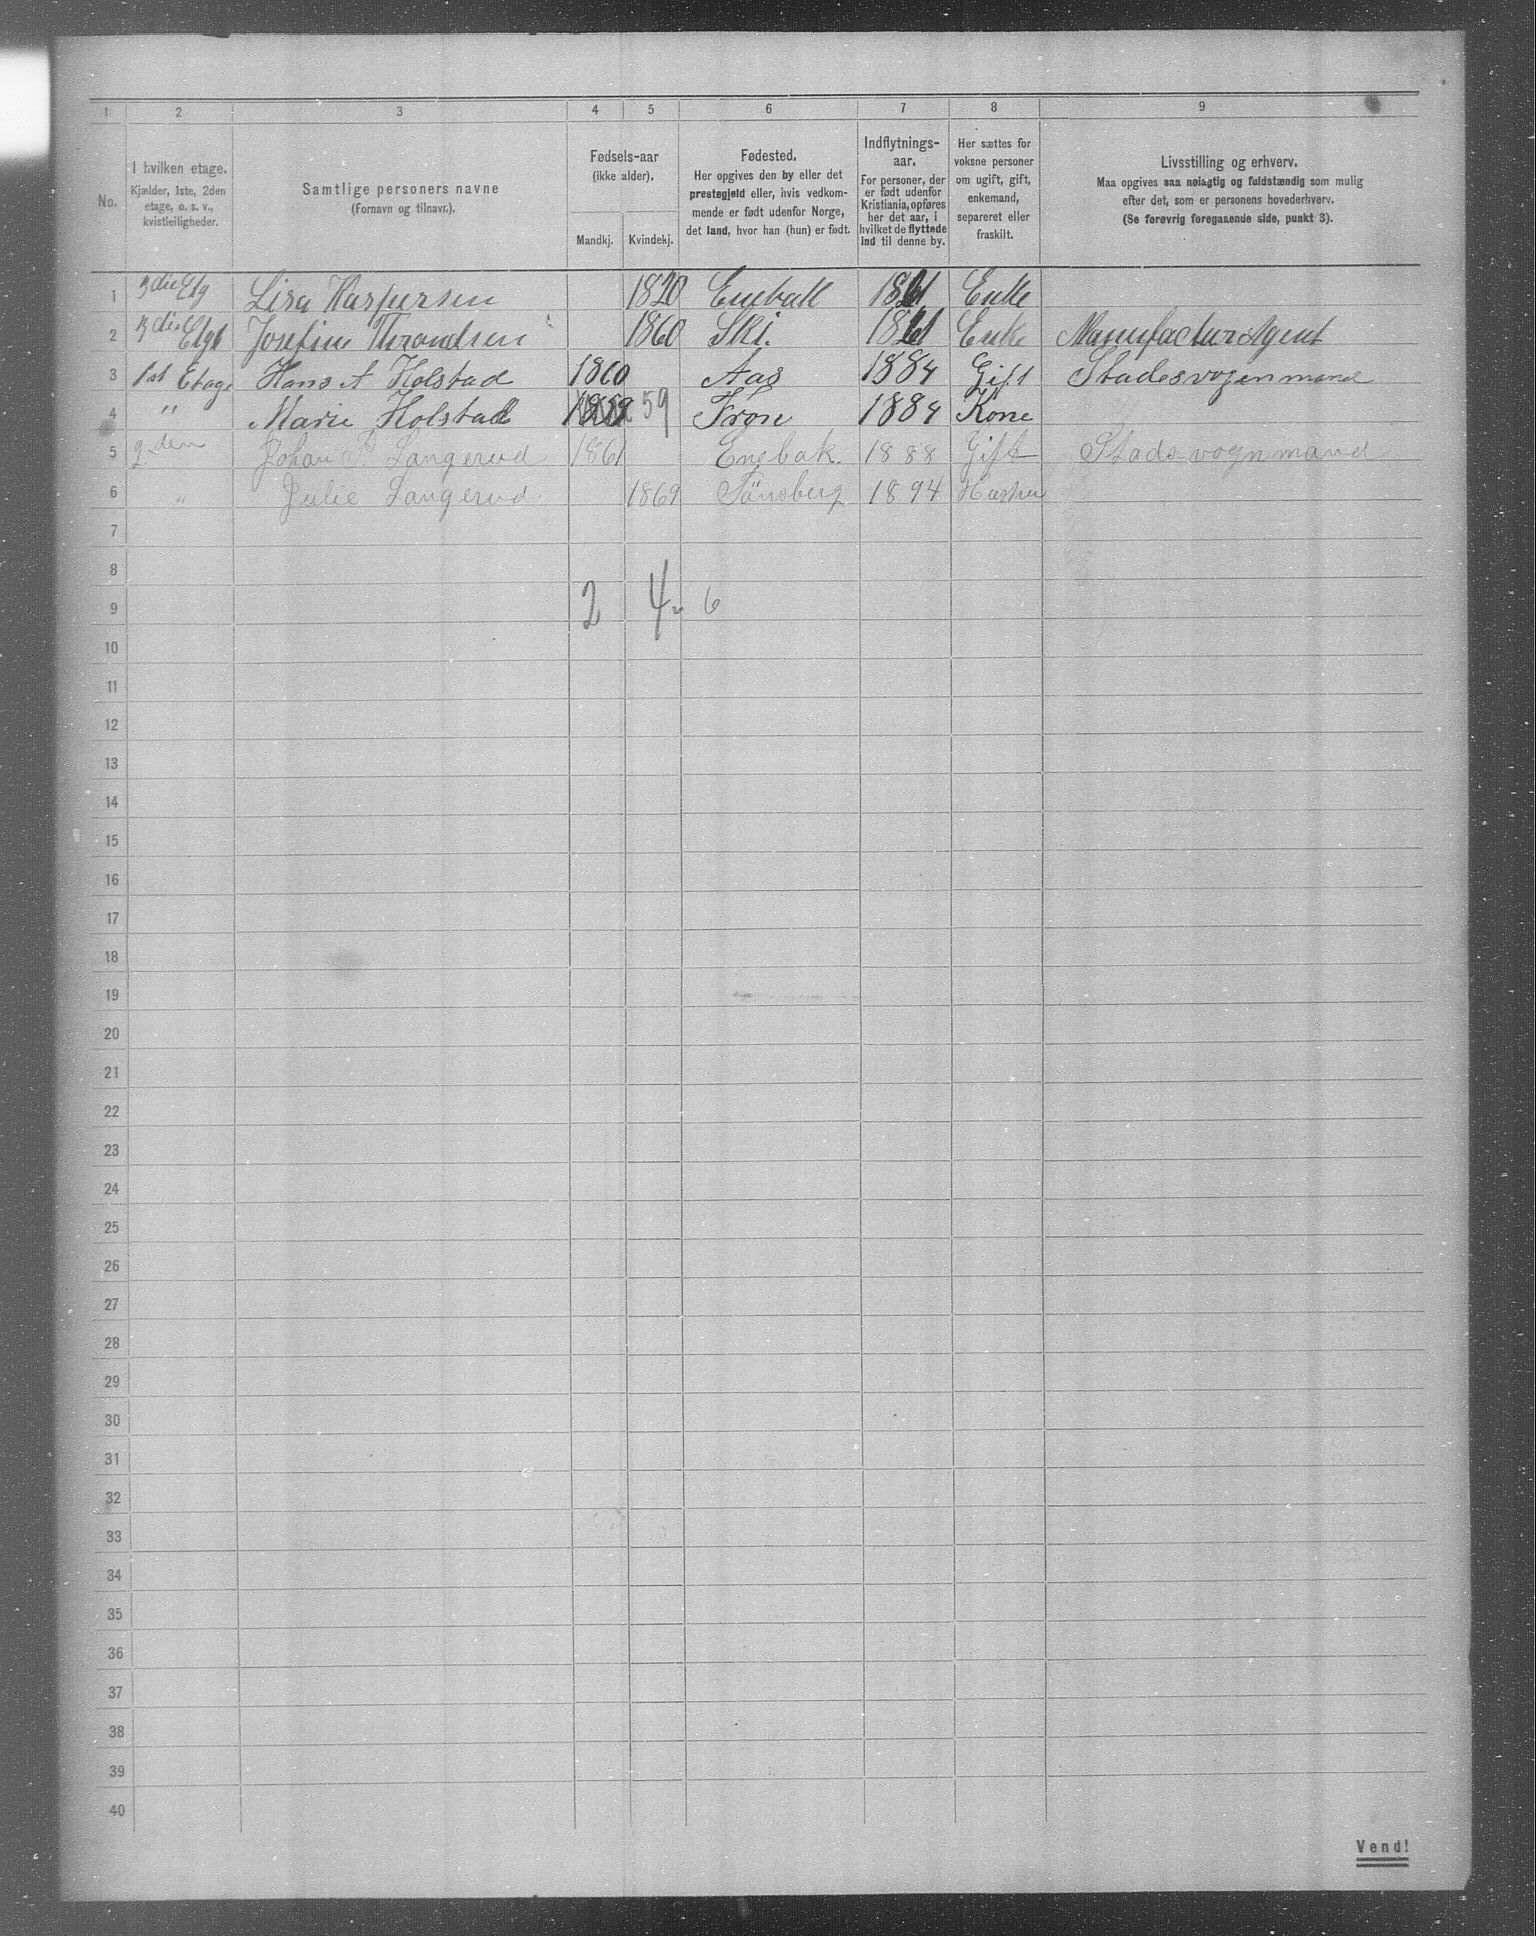 1 2 3 4 5 6 7 8 9
No. I hvilken etage. Kjælder, 1ste, 2den etage, o. s. v., kvistleiligheder.
Samtlige personers navne (Fornavn og tilnavn).
Fødsels-aar (ikke alder). Mandkj. Kvindekj.
Fødested. Her opgives den by eller det prestegjeld eller, hvis vedkommende er født udenfor Norge, det land, hvor han (hun) er født.
Indflytnings-aar. For personer, der er født udenfor Kristiania, opføres her det aar, i hvilket de flyttede ind til denne by.
Her sættes for voksne personer om ugift, gift, enkemand, separeret eller fraskilt.
Livsstilling og erhverv. Maa opgives saa nøiagtig og fuldstændig som mulig efter det, som er personens hovederhverv. (Se forøvrig foregaaende side, punkt 3).
1 3die Etg Lisa Kaspersen 1820 Enebak 1861 Enke
2 3die Etg Josefine Throndsen 1860 Ski. 1861 Enke Manufactur Agent
3 1st Etage Hans A Holstad 1860 Aas 1884 Gift Stadsvognmand
4 " Marie Holstad 1859 59 Fron 1884 Kone
5 2den Johan P. Langerud 1861 Enebak. 1888 Gift Stadsvognmand
6 " Julie Langerud 1869 Tönsberg 1894 Hustru
7
8
9 2 4 6
10
11
12
13
14
15
16
17
18
19
20
21
22
23
24
25
26
27
28
29
30
31
32
33
34
35
36
37
38
39
40
Vend!